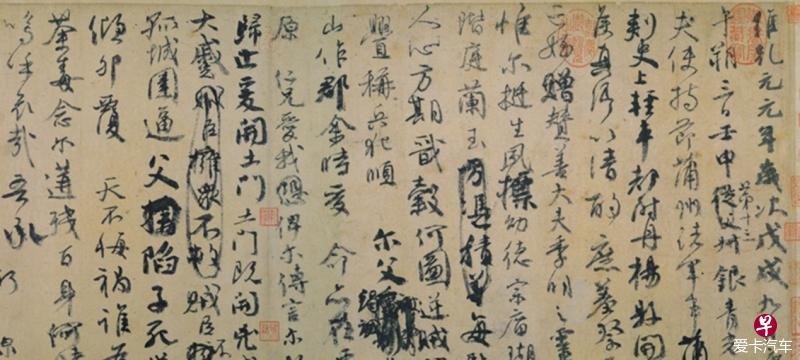 維乾元元年歲次戊戌九
午朔三日壬申第十三從父叔銀青光
夫使持節蒲州諸軍事蒲
刺史上輕車都尉丹楊縣開
侯真卿以清酌庶羞祭
亡姪贈贊善大夫季明之靈
惟爾挺生夙標幼德宗廟瑚
階庭蘭玉方憑積善每慰
人心方期戩穀何圖逆賊
釁稱兵犯順 爾父竭誠
山作郡余時受 命亦在
原 仁兄愛我恐俾爾傳言爾
歸止爰開土門土門既開兇
大蹙賊臣擁眾不救賊臣不
孤城圍逼父擒陷子死
傾卵覆 天不悔禍誰為
荼毒念爾遘殘百身何
嗚呼哀哉吾承
早
爱卡汽车